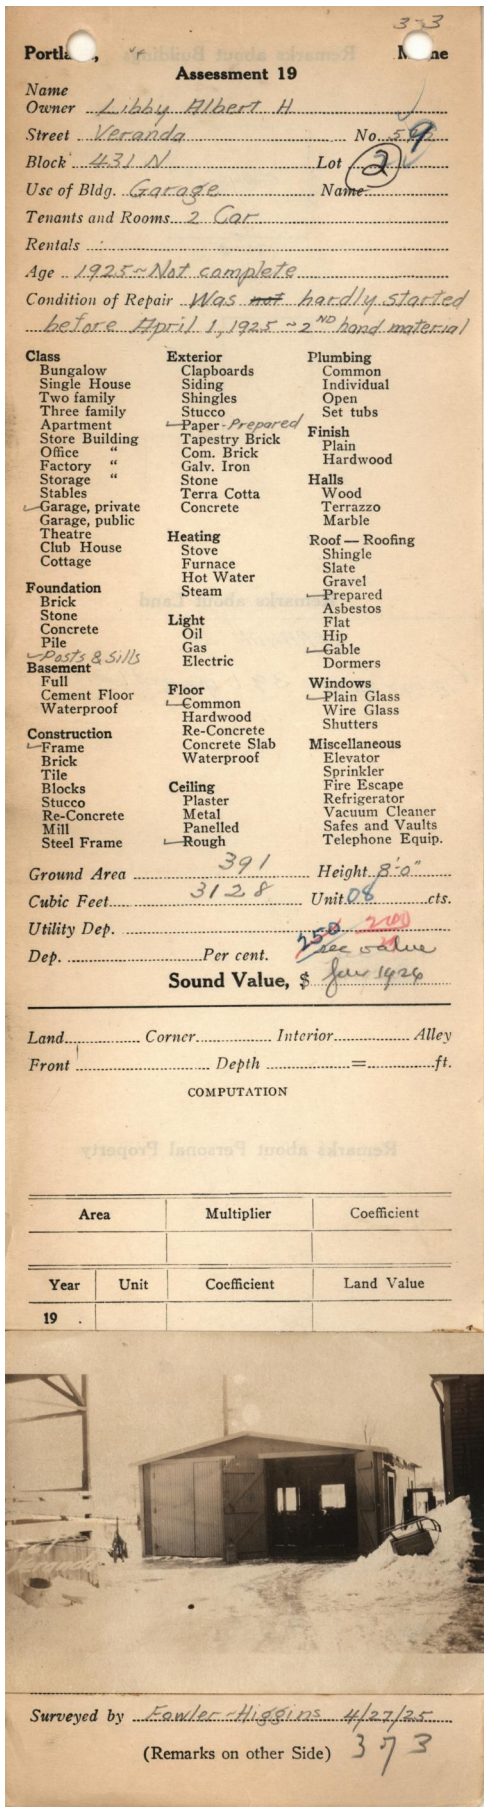 3-3
Portla , M ne
Assessment 19
Name
Owner Libby Albert H
Street Veranda No. 9
Block 431 N Lot 2
Use of Bldg. Garage Name
Tenants and Rooms 2 Car
Rentals
Age 1925~Not complete
Condition of Repair Was not hardly started
before April 1, 1925 ~ 2ND hand material
Class
Bungalow
Single House
Two family
Three family
Apartment
Store Building
Office "
Factory "
Storage "
Stables
Garage, private
Garage, public
Theatre
Club House
Cottage
Foundation
Brick
Stone
Concrete
Pile
Posts & Sills
Basement
Full
Cement Floor
Waterproof
Construction
Frame
Brick
Tile
Blocks
Stucco
Re-Concrete
Mill
Steel Frame
Exterior
Clapboards
Siding
Shingles
Stucco
Paper - Prepared
Tapestry Brick
Com. Brick
Galv. Iron
Stone
Terra Cotta
Concrete
Heating
Stove
Furnace
Hot Water
Steam
Light
Oil
Gas
Electric
Floor
Common
Hardwood
Re-Concrete
Concrete Slab
Waterproof
Ceiling
Plaster
Metal
Panelled
Rough
Plumbing
Common
Individual
Open
Set tubs
Finish
Plain
Hardwood
Halls
Wood
Terrazzo
Marble
Roof — Roofing
Shingle
Slate
Gravel
Prepared
Asbestos
Flat
Hip
Gable
Dormers
Windows
Plain Glass
Wire Glass
Shutters
Miscellaneous
Elevator
Sprinkler
Fire Escape
Refrigerator
Vacuum Cleaner
Safes and Vaults
Telephone Equip.
Ground Area 391 Height 8'-0"
Cubic Feet 3128 Unit 08 cts.
Utility Dep. 250 200
Dep. Per cent. see value
Sound Value, $ Jan 1926
Land Corner Interior Alley
Front Depth = ft.
COMPUTATION
Area Multiplier Coefficient
Year Unit Coefficient Land Value
19 .
Surveyed by Fowler-Higgins 4/27/25
(Remarks on other Side) 373